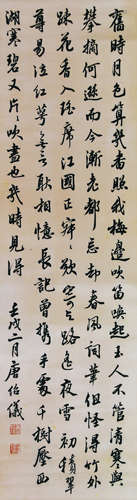 舊時月色算幾番照我梅邊吹笛喚起玉人不管清寒與
攀摘何遜而今漸老都忘却春風詞筆但怪得竹外
疎花香入瑤席江國正寂寂歎寄與路遙夜雪初積翠
尊易泣紅萼無言耿相憶長記曾攜手處千樹壓西
湖寒碧又片片吹盡也幾時見得
壬戌二月唐紹儀